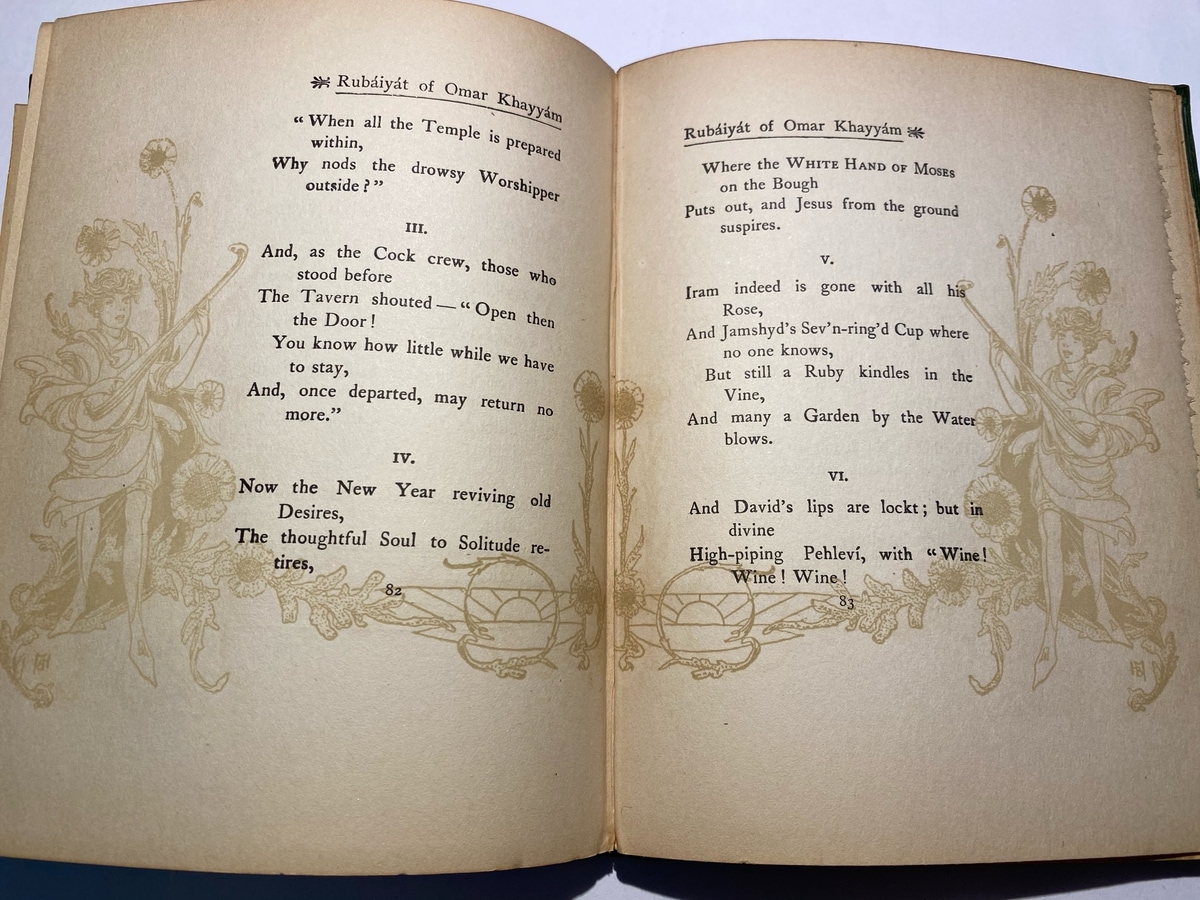 Rubáiyát of Omar Khayyám
“When all the Temple is prepared
within,
Why nods the drowsy Worshipper
outside?”
III.
And, as the Cock crew, those who
stood before
The Tavern shouted — “Open then
the Door!
You know how little while we have
to stay,
And, once departed, may return no
more.”
IV.
Now the New Year reviving old
Desires,
The thoughtful Soul to Solitude re-
tires,
82
Rubáiyát of Omar Khayyám
Where the WHITE HAND OF MOSES
on the Bough
Puts out, and Jesus from the ground
suspires.
V.
Iram indeed is gone with all his
Rose,
And Jamshyd's Sev'n-ring'd Cup where
no one knows,
But still a Ruby kindles in the
Vine,
And many a Garden by the Water
blows.
VI.
And David's lips are lockt; but in
divine
High-piping Pehleví, with “Wine!
Wine! Wine!
83